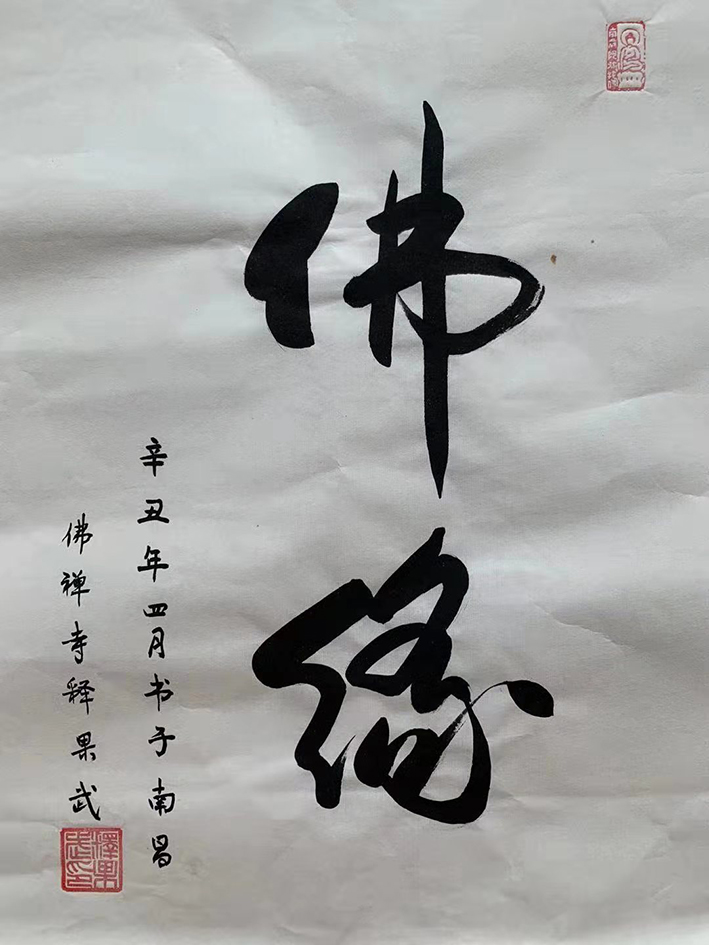 佛缘
辛丑年四月书于南昌
佛禅寺释果武
释果武印